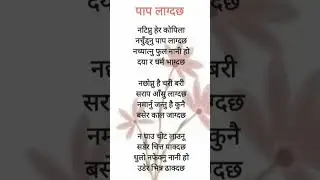 पाप लाग्दछ
नटिप्नु हेर कोपिला
नचुँड्नु पाप लाग्दछ
नच्यात्नु फुल नानी हो
दया र धर्म भाग्दछ
नछोप्नु है चरी बरी
सराप आँसु लाग्दछ
नमार्नु जन्तु है कुनै
बसेर काल जाग्दछ
न घाउ चोट लाउनू
सडेर चित्त पाक्दछ
धुलो नफेक्नु नानी हो
उडेर भित्र ढाक्दछ